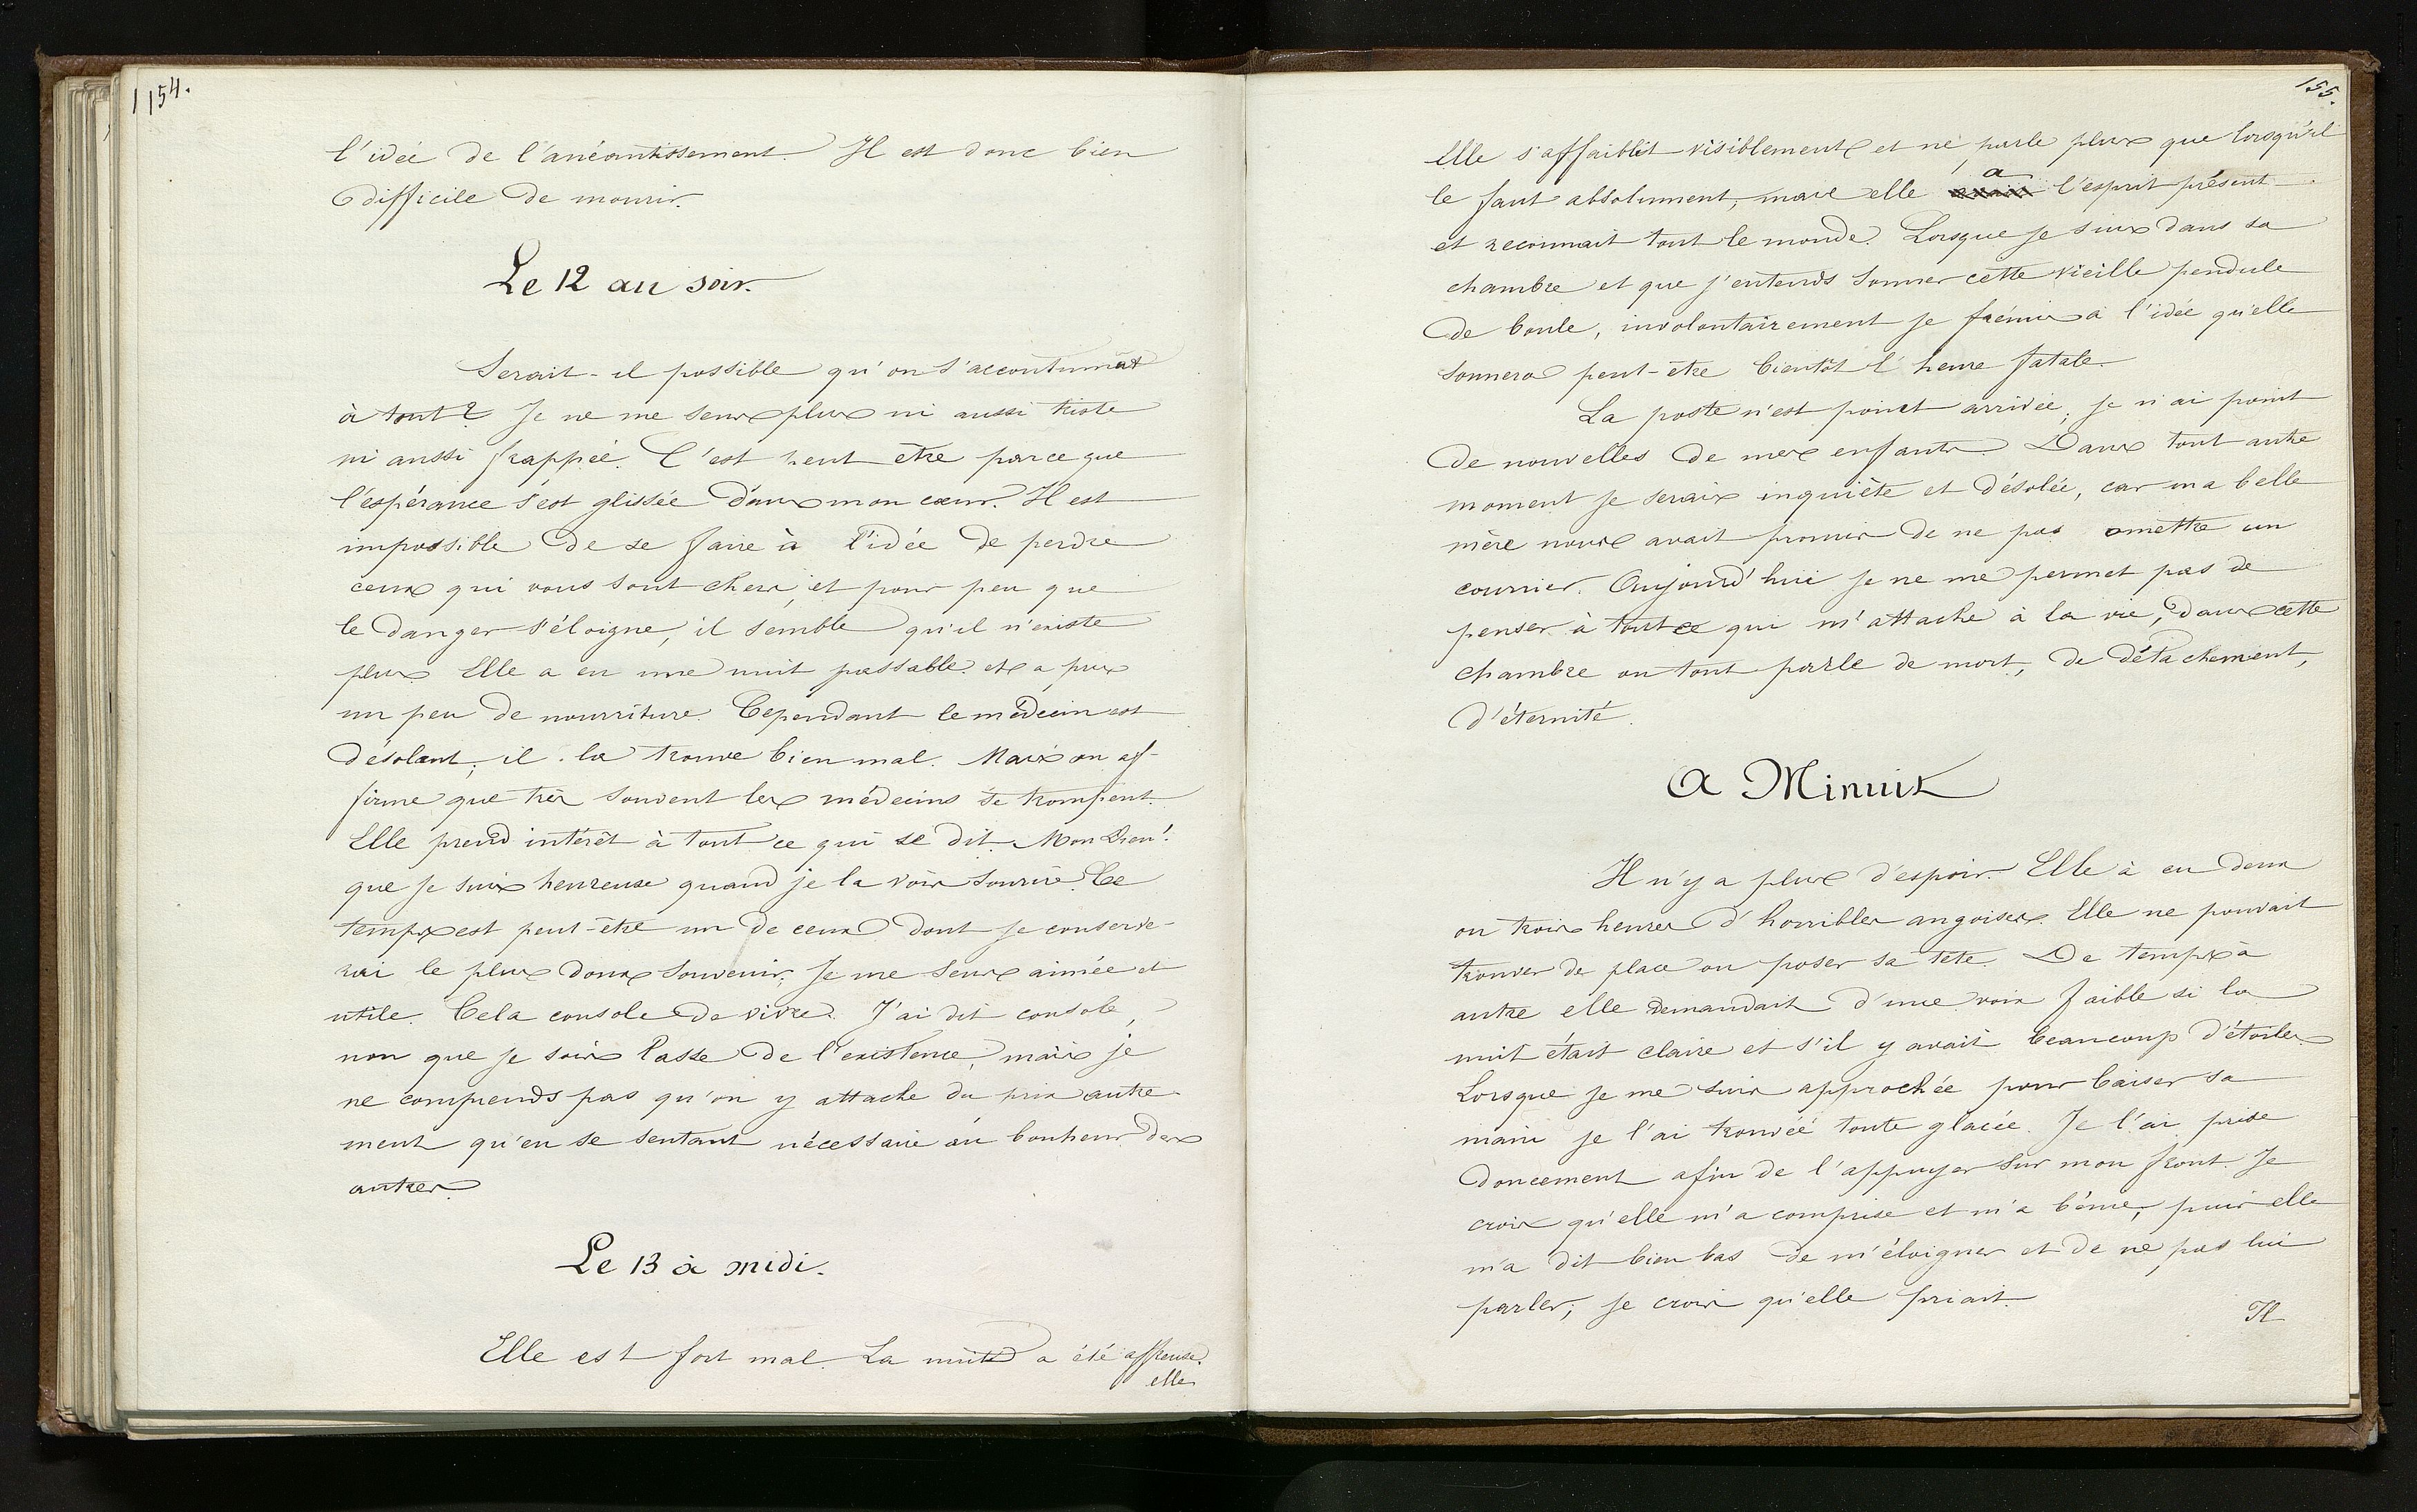 154.
l'idée de l'anéantissement. Il est donc bien
difficile de mourir.
Le 12 au soir.
Serait-il possible qu'on s'accoutumât
à tout? Je ne me sens plus ni aussi triste
ni aussi frappée. C'est peut être parce que
l'espérance s'est glissée dans mon cœur. Il est
impossible de se faire à l'idée de perdre
ceux qui vous sont chers, et pour peu que
le danger s'éloigne, il semble qu'il n'existe
plus. Elle a eu une nuit passable et a pris
un peu de nourriture. Cependant le médecin est
désolant; il la trouve bien mal. Mais on af-
firme que très souvent les médecins se trompent.
Elle prend intérêt à tout ce qui se dit. Mon Dieu!
que je suis heureuse quand je la vois sourire. Ce
temps est peut-être un de ceux dont je conserve-
rai le plus doux souvenir; Je me sens aimée et
utile. Cela console de vivre. J'ai dit console,
non que je sois lasse de l'existence, mais je
ne comprends pas qu'on y attache du prix autre-
ment qu'en se sentant nécessaire au bonheur des
autres.
Le 13 à midi.
Elle est fort mal. La nuit a été affreuse.
elle
155.
Elle s'affaiblit visiblement et ne parle plus que lorsqu'il
a
le faut absolument, mais elle l'esprit présent
et reconnait tout le monde. Lorsque je suis dans sa
chambre et que j'entends sonner cette vieille pendule
de boule, involontairement je frémis à l'idée qu'elle
sonnera peut-être bientôt l'heure fatale.
La poste n'est point arrivée; je n'ai point
de nouvelles de mes enfants. Dans tout autre
moment je serais inquiète et désolée, car ma belle
mère nous avait promis de ne pas omettre un
courrier. Aujourd'hui je ne me permet pas de
penser à tout ce qui m'attache à la vie, dans cette
chambre ou tout parle de mort, de détachement,
d'éternité.
A Minuit
Il n'y a plus d'espoir. Elle à eu deux
ou trois heures d'horribles angoises. Elle ne pouvait
trouver de place ou poser sa tête. De temps à
autre elle demandait d'une voix faible si la
nuit était claire et s'il y avait beaucoup d'étoiles.
Lorsque je me suis approchée pour baiser sa
main je l'ai trouvée toute glacée. Je l'ai prise
doucement afin de l'appuyer sur mon front. Je
crois qu'elle m'a comprise et m'a bénie, puis elle
m'a dit bien bas de m'éloigner et de ne pas lui
parler; je crois qu'elle priait.
Il